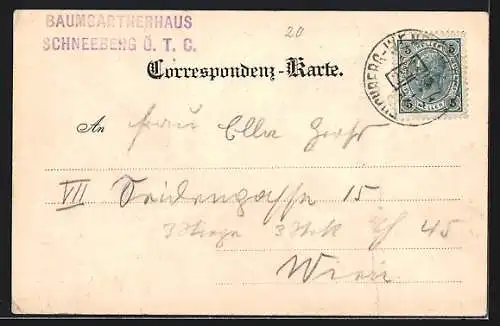 BAUMGARTNERHAUS
SCHNEEBERG Ö. T. C.
20
Correspondenz-Karte.
5 HELLER 5
5 HELLER 5
An Frau Ella
VII Seidengasse 15
3 Stiege 3 Stck 45
Wien